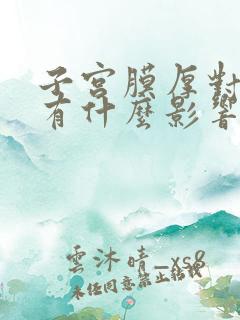 子宮膜厚對
有什麼影響
雲沐晴_xs8
未經同意禁止轉載